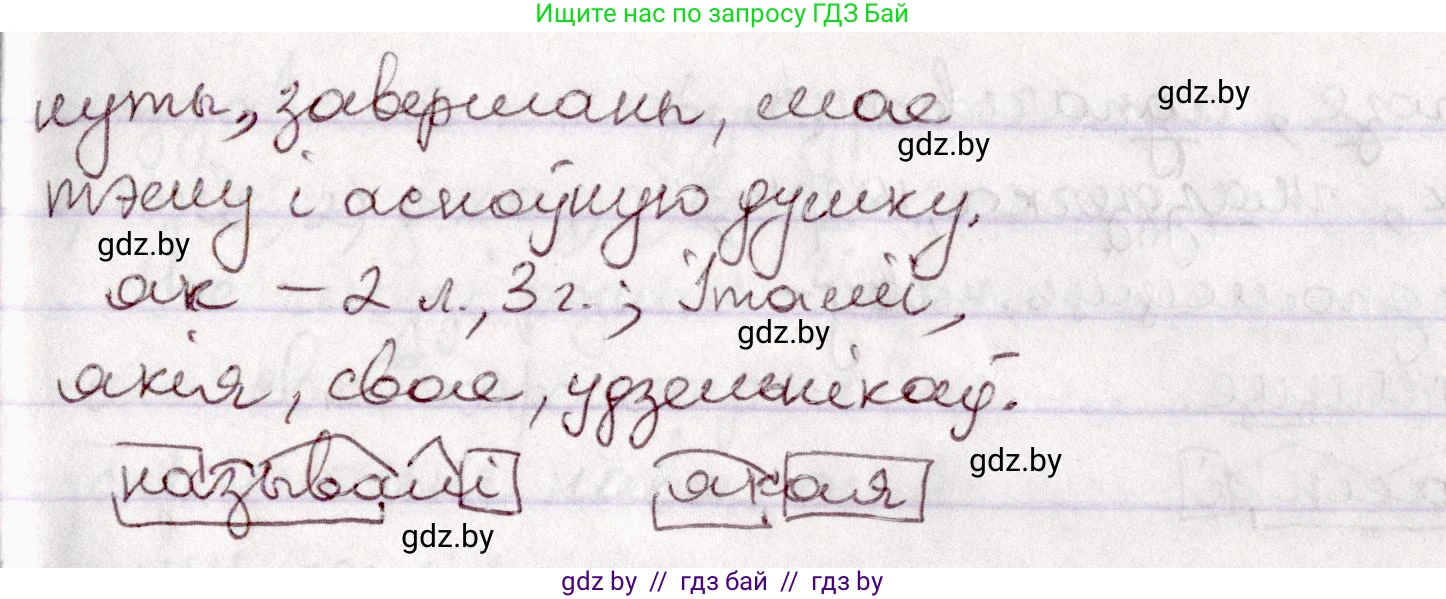 Ищите нас по запросу ГДЗ Бай
нуты, завершаны, мае
gdz.by
gdz.by
тэму і асноўную думку.
gdz.by
як – 2 л., 3 г.; Ітаміі,
gdz.by
якія, свае, удзельнікаў.
gdz.by
называлі якая
gdz.by
gdz.by // гдз бай // гдз by